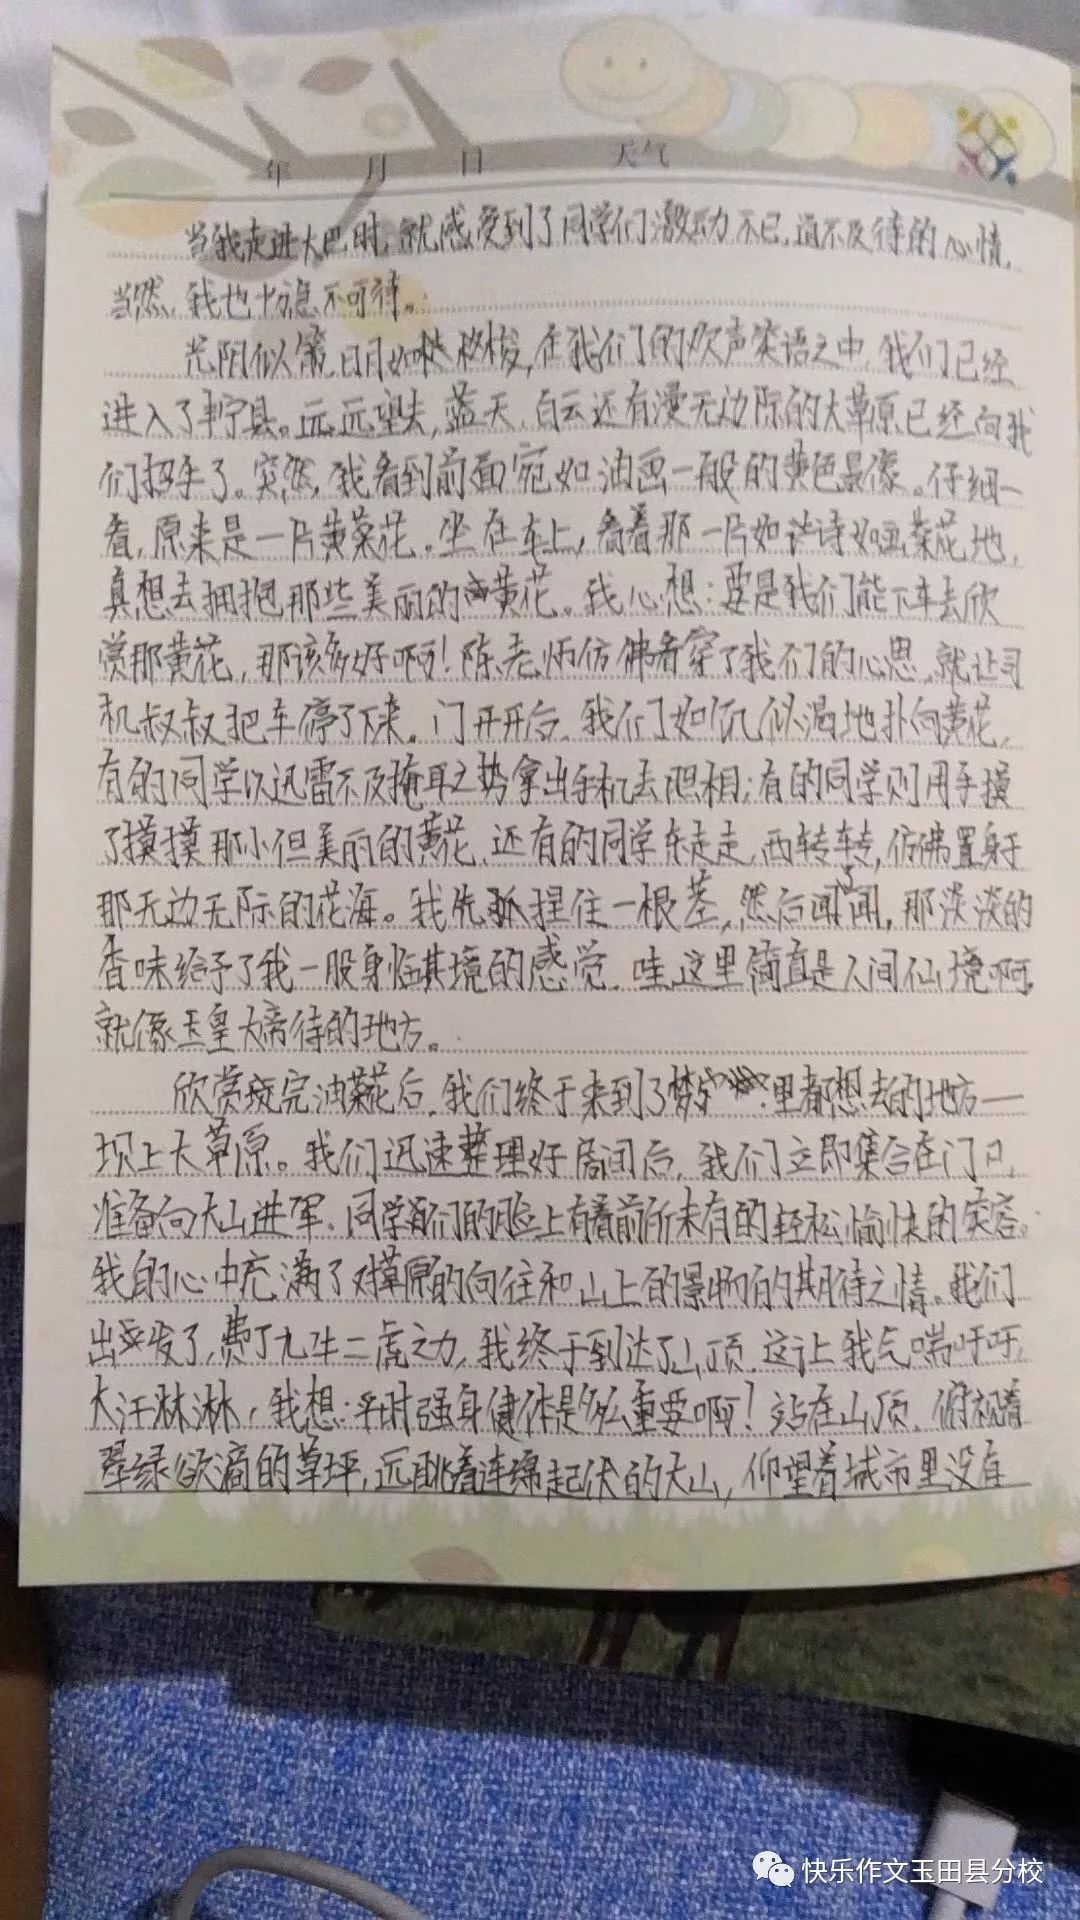 年 月 日 天气
当我走进大巴时,就感受到了同学们激动不已,迫不及待的心情,
当然,我也十分急不可待。
光阴似箭,日月如梭,在我们的欢声笑语之中,我们已经
进入了丰宁县。远远望去,蓝天,白云还有漫无边际的大草原已经向我
们招手了。突然,我看到前面宛如油画一般的黄色景像。仔细一
看,原来是一片黄菜花。坐在车上,看着那一片如诗如画菜花地,
真想去拥抱那些美丽的黄花。我心想:要是我们能下车去欣
赏那黄花,那该多好啊!陈老师仿佛看穿了我们的心思,就让司
机叔叔把车停了下来。门开开后,我们如饥似渴地扑向黄花,
有的同学以迅雷不及掩耳之势拿出手机去照相;有的同学则用手摸
了摸摸那小但美丽的黄花,还有的同学东走走,西转转,仿佛置身于
那无边无际的花海。我先捏住一根茎,然后闻闻,那淡淡的
香味给予了我一股身临其境的感觉,哇,这里简直是人间仙境啊,
就像玉皇大帝待的地方。
欣赏完油菜花后,我们终于来到了梦里都想去的地方——
坝上大草原。我们迅速整理好房间后,我们立即集合在门口,
准备向大山进军,同学们的脸上有着前所未有的轻松愉快的笑容。
我的心中充满了对草原的向往和山上的景物的期待之情。我们
出发了,费了九牛二虎之力,我终于到达了山顶,这让我气喘吁吁,
大汗淋淋,我想:平时强身健体是多么重要啊!站在山顶,俯视着
翠绿欲滴的草坪,远眺着连绵起伏的大山,仰望着城市里没有
快乐作文玉田县分校